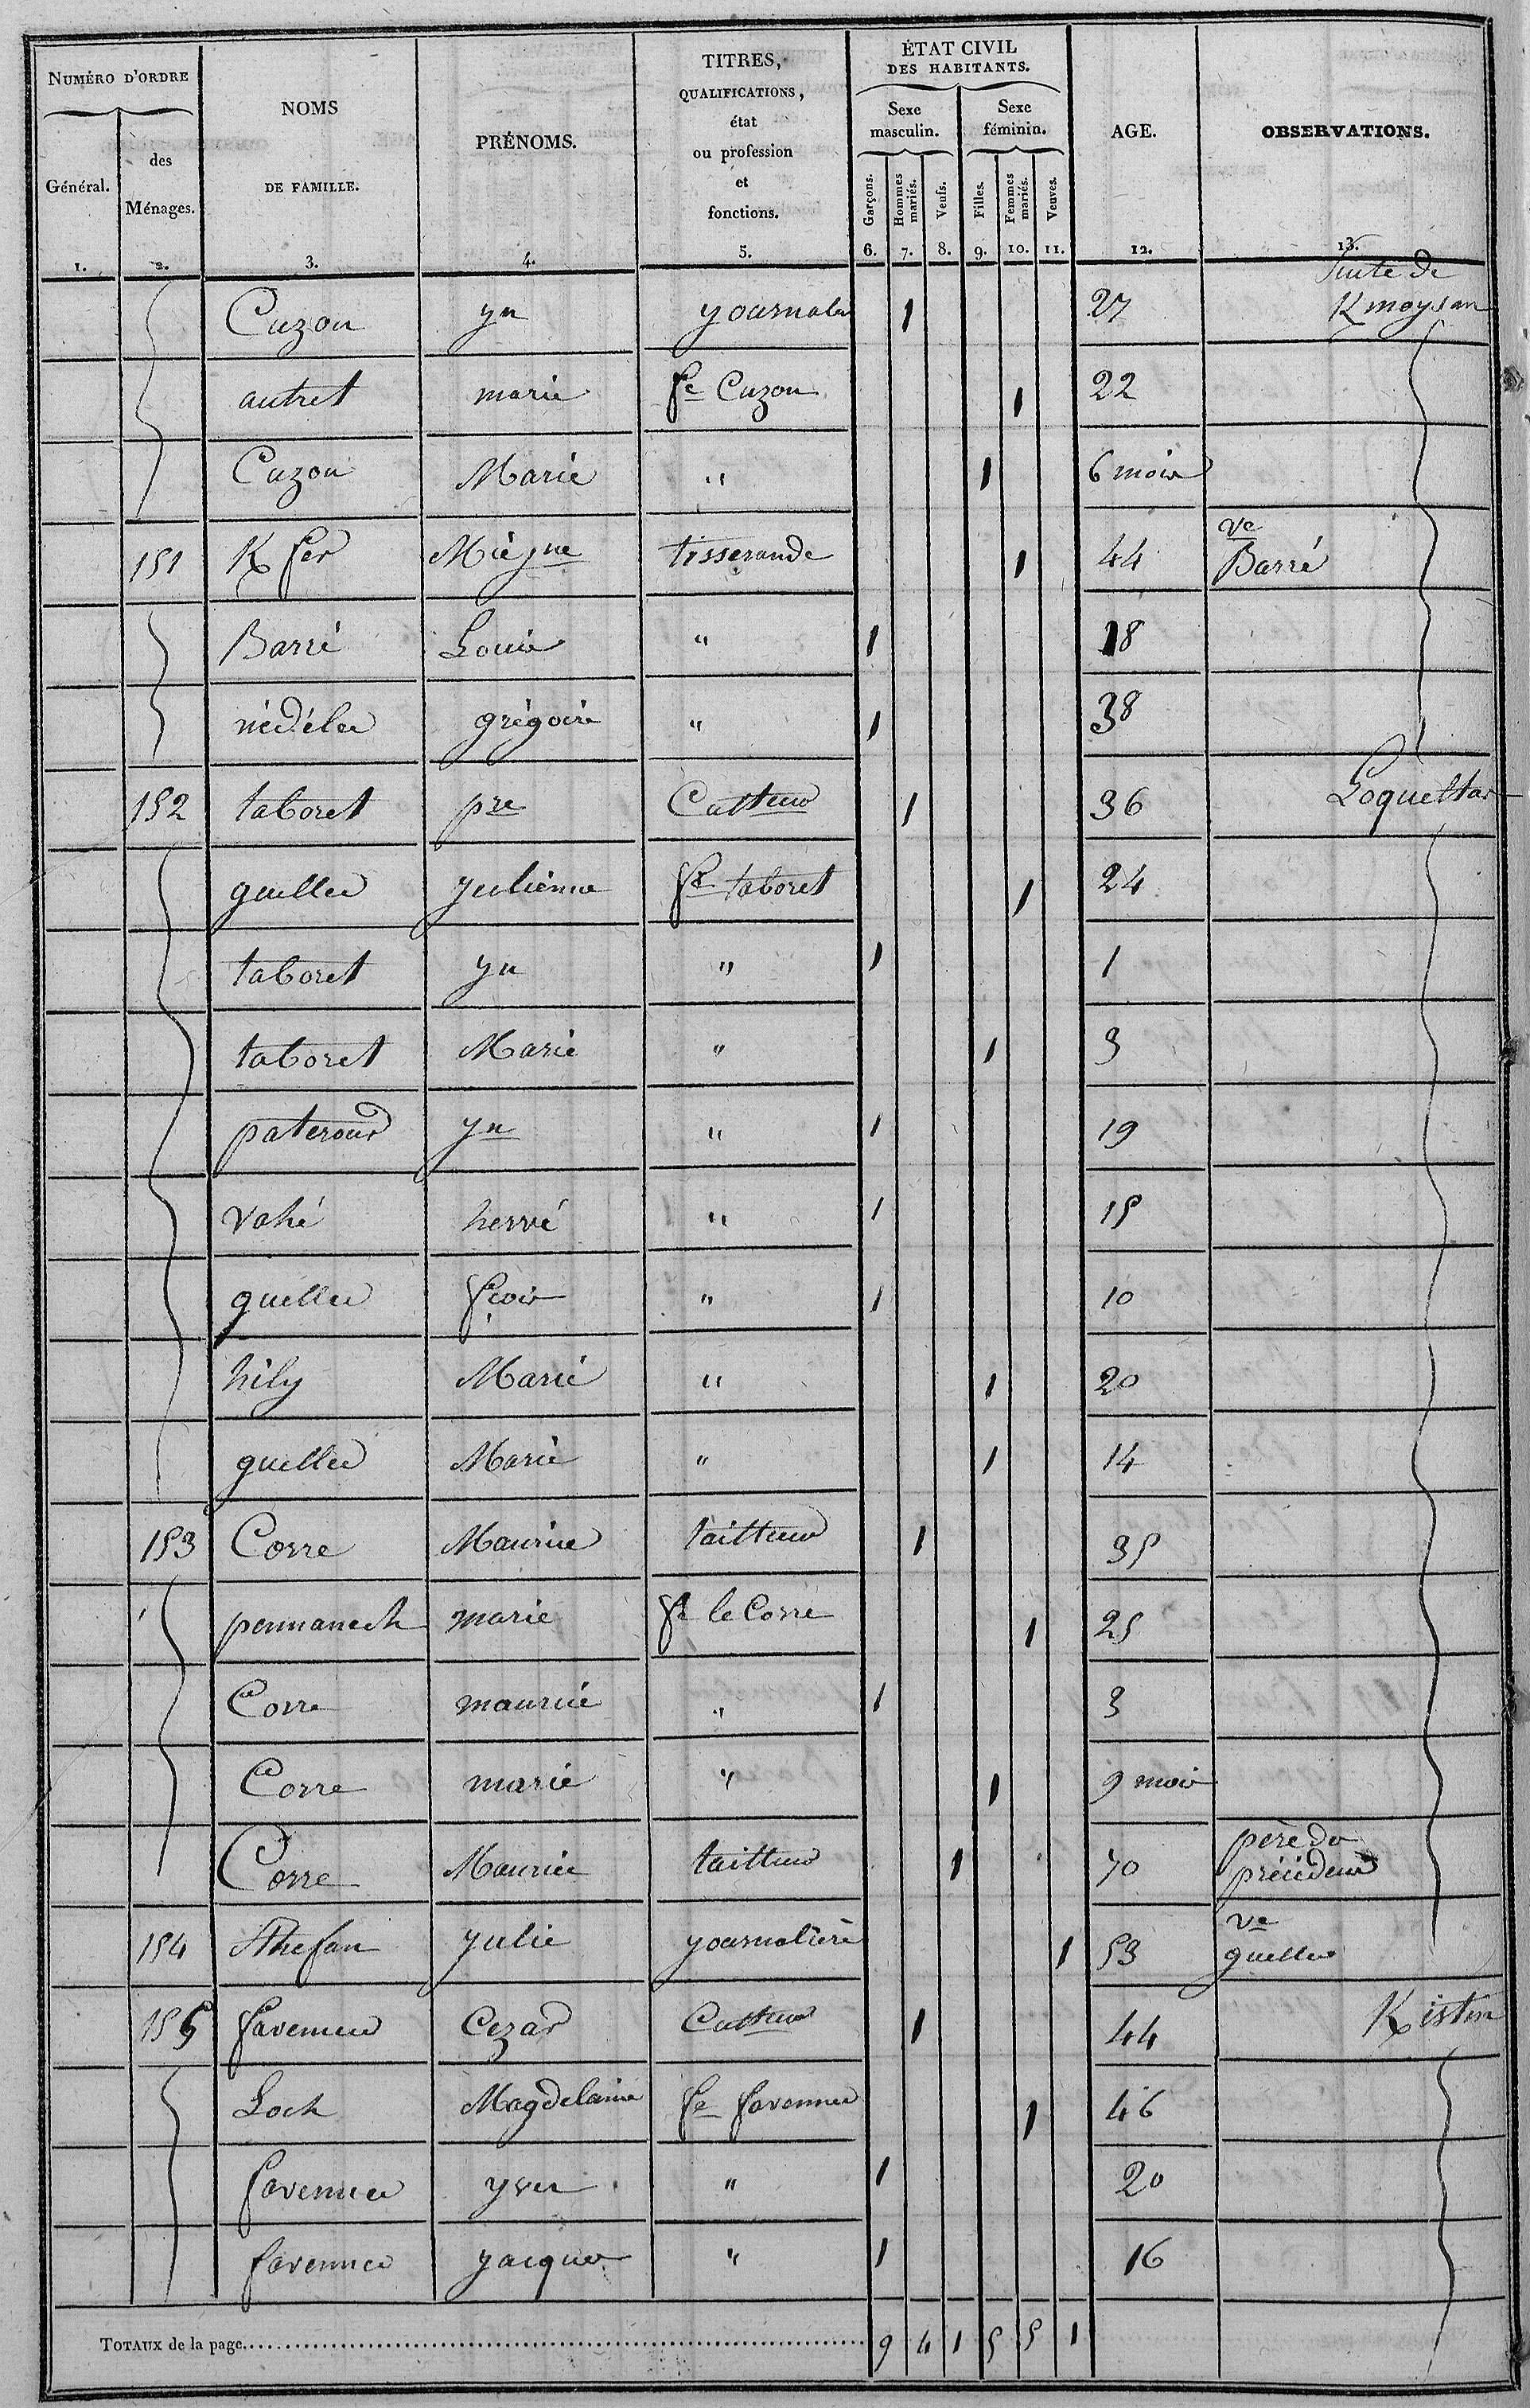 NUMÉRO D'ORDRE
Général.
des
Ménages.
NOMS
DE FAMILLE.
PRÉNOMS.
TITRES,
QUALIFICATIONS,
état
ou profession
et
fonctions.
ÉTAT CIVIL
DES HABITANTS.
Sexe
masculin.
Sexe
féminin.
Garçons.
Hommes
mariés.
Veufs.
Filles.
Femmes
mariés.
Veuves.
AGE.
OBSERVATIONS.
1. 2. 3. 4. 5. 6. 7. 8. 9. 10. 11. 12. 13.
Suite de
Cuzon yn yournalier 1 27 K moysan
autret marie fe Cuzon 1 22
Cuzon Marie " 1 6 mois
151 K fer Mie yne tisserande 1 44 ve Barré
Barré Louis " 1 18
nédélec grégoire " 1 38
152 taboret pre Cultteur 1 36 Loquettas
guellec yulienne fe taboret 1 24
taboret yn " 1 1
taboret Marie " 1 3
paterour yn " 1 19
vahé hervé " 1 15
guellec fcois " 1 10
hily Marie " 1 20
guellec Marie " 1 14
153 Corre Maurice tailleur 1 35
pennanech marie fe le Corre 1 25
Corre maurice " 1 3
Corre marie " 1 9 mois
Corre Maurice tailleur 1 70 père du précédent
154 Sthefan yulie yournalière 1 53 ve guellec
155 favennec Cezar Cultteur 1 44 K istin
Loch Magdelaine fe favennec 1 46
favennec yves " 1 20
favennec yacques " 1 16
TOTAUX de la page 9 4 1 5 5 1